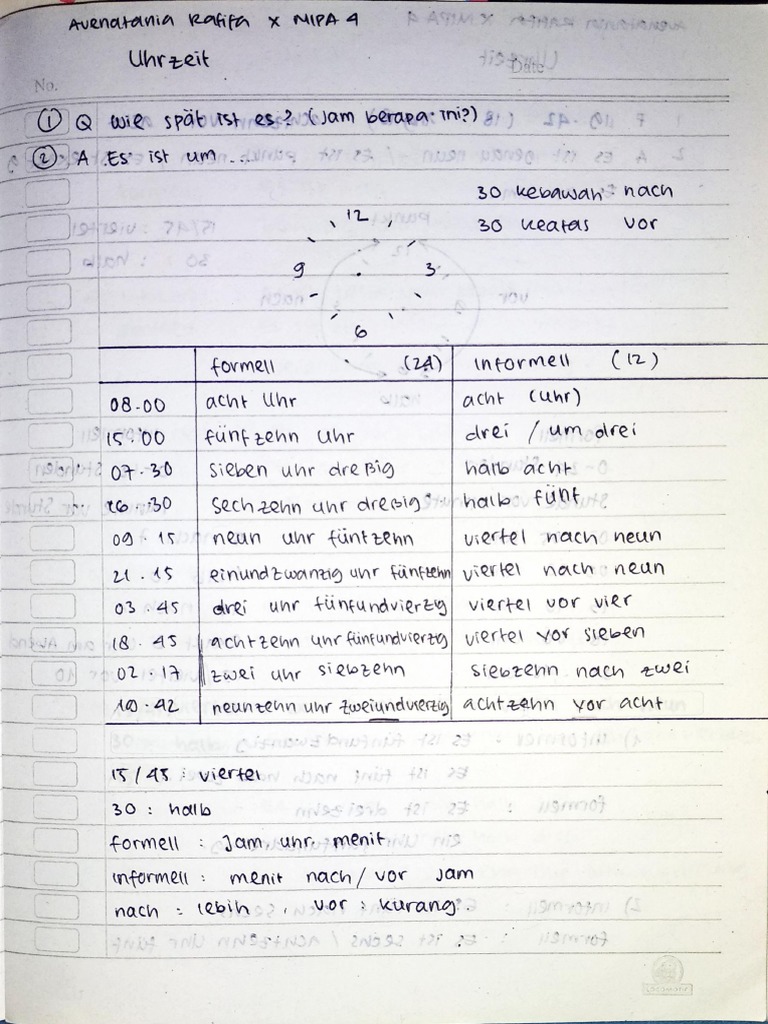 Avenatania Rafifa X MIPA 4
Uhrzeit
No.
Date
① Q Wie spät ist es? (Jam berapa ini?)
② A Es ist um...
30 kebawah nach
30 keatas vor
12
9 3
6
formell (24) informell (12)
08.00 acht Uhr acht (Uhr)
15.00 fünfzehn Uhr drei / um drei
07.30 sieben uhr dreßig halb acht
16.30 sechzehn uhr dreßig halb fünf
09.15 neun uhr fünfzehn viertel nach neun
21.15 einundzwanzig uhr fünfzehn viertel nach neun
03.45 drei uhr fünfundvierzig viertel vor vier
18.45 achtzehn uhr fünfundvierzig viertel vor sieben
02.17 zwei uhr siebzehn siebzehn nach zwei
19.42 neunzehn uhr zweiundvierzig achtzehn vor acht
15/45 : viertel
30 : halb
formell : Jam uhr menit
informell : menit nach/vor jam
nach : lebih , vor : kurang